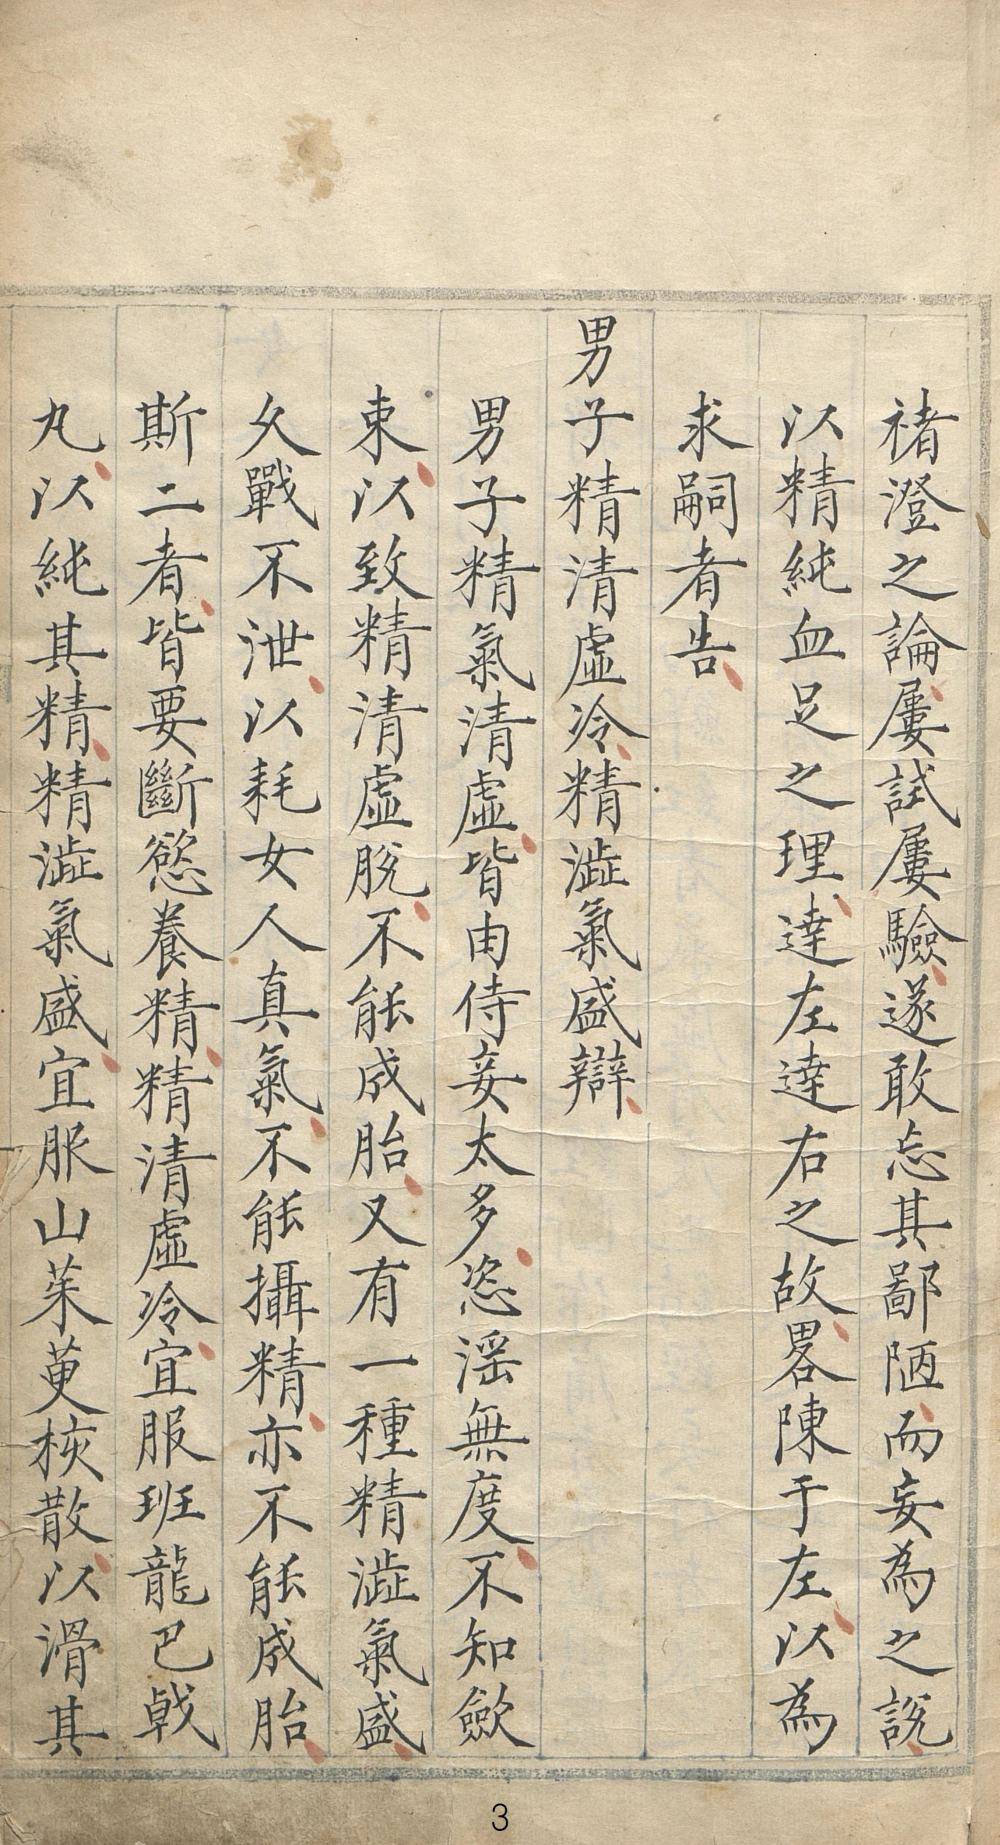 褚澄之論屢試屢驗遂敢忘其鄙陋而妄為之說
以精純血足之理達左達右之故畧陳于左以為
求嗣者告
男子精清虛冷精澁氣盛辯
男子精氣清虛皆由侍妾太多恣淫無度不知歛
束以致精清虛脫不能成胎又有一種精澁氣盛
久戰不泄以耗女人真氣不能攝精亦不能成胎
斯二者皆要斷慾養精精清虛冷宜服班龍巴戟
丸以純其精精澁氣盛宜服山茱萸核散以滑其
3